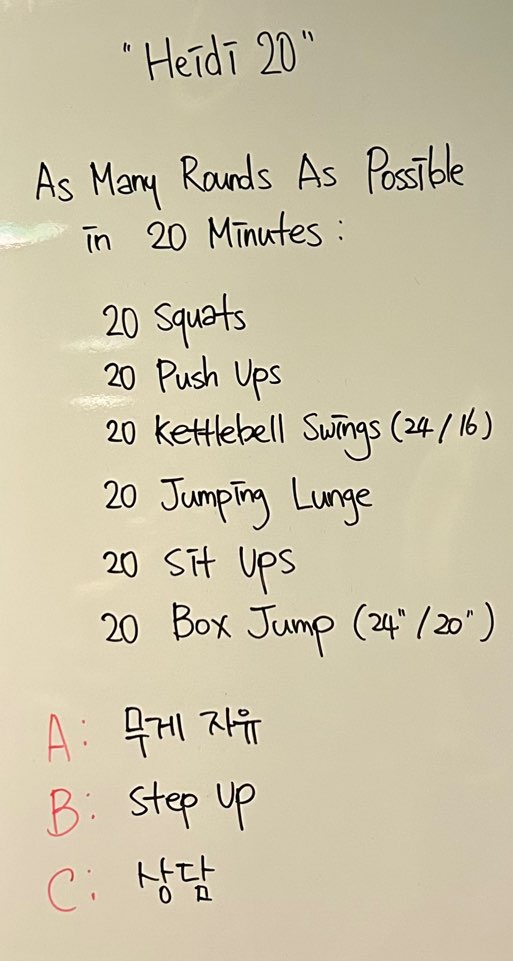 "Heidi 20"
As Many Rounds As Possible
in 20 Minutes:
20 Squats
20 Push Ups
20 Kettlebell Swings (24/16)
20 Jumping Lunge
20 Sit Ups
20 Box Jump (24"/20")
A: 무게 자유
B: Step Up
C: 상담